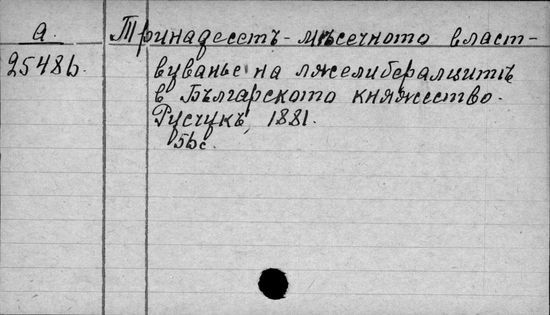 a.
25486.
Тринадесетъ-мѣсечното власт-
вуванье на лжелибералцитѣ
в Българското княжество.
Русчукъ, 1881.
56 с.